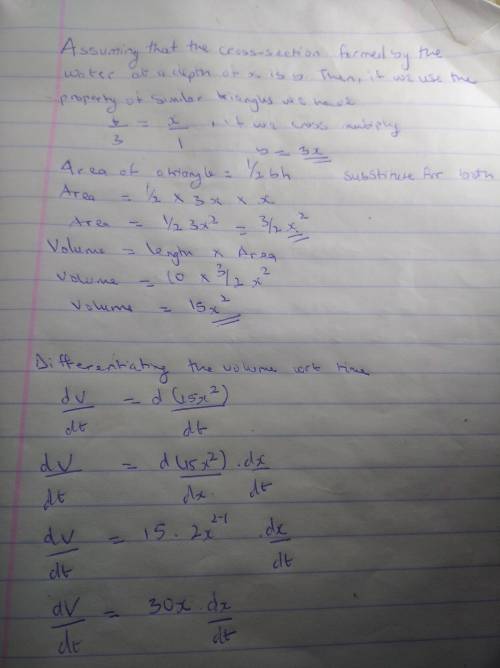 Assuming that the cross-section formed by the
water at a depth of x is b. Then, if we use the
property of similar triangles we have
b/3 = x/1 , if we cross multiply
b = 3x
Area of a triangle = 1/2 bh substitute for both
Area = 1/2 x 3x x x
Area = 1/2 3x² = 3/2 x²
Volume = length x Area
Volume = 10 x 3/2 x²
Volume = 15x²
Differentiating the volume wrt time
dV/dt = d(15x²)/dt
dV/dt = d(15x²)/dx . dx/dt
dV/dt = 15 . 2x²⁻¹ . dx/dt
dV/dt = 30x . dx/dt